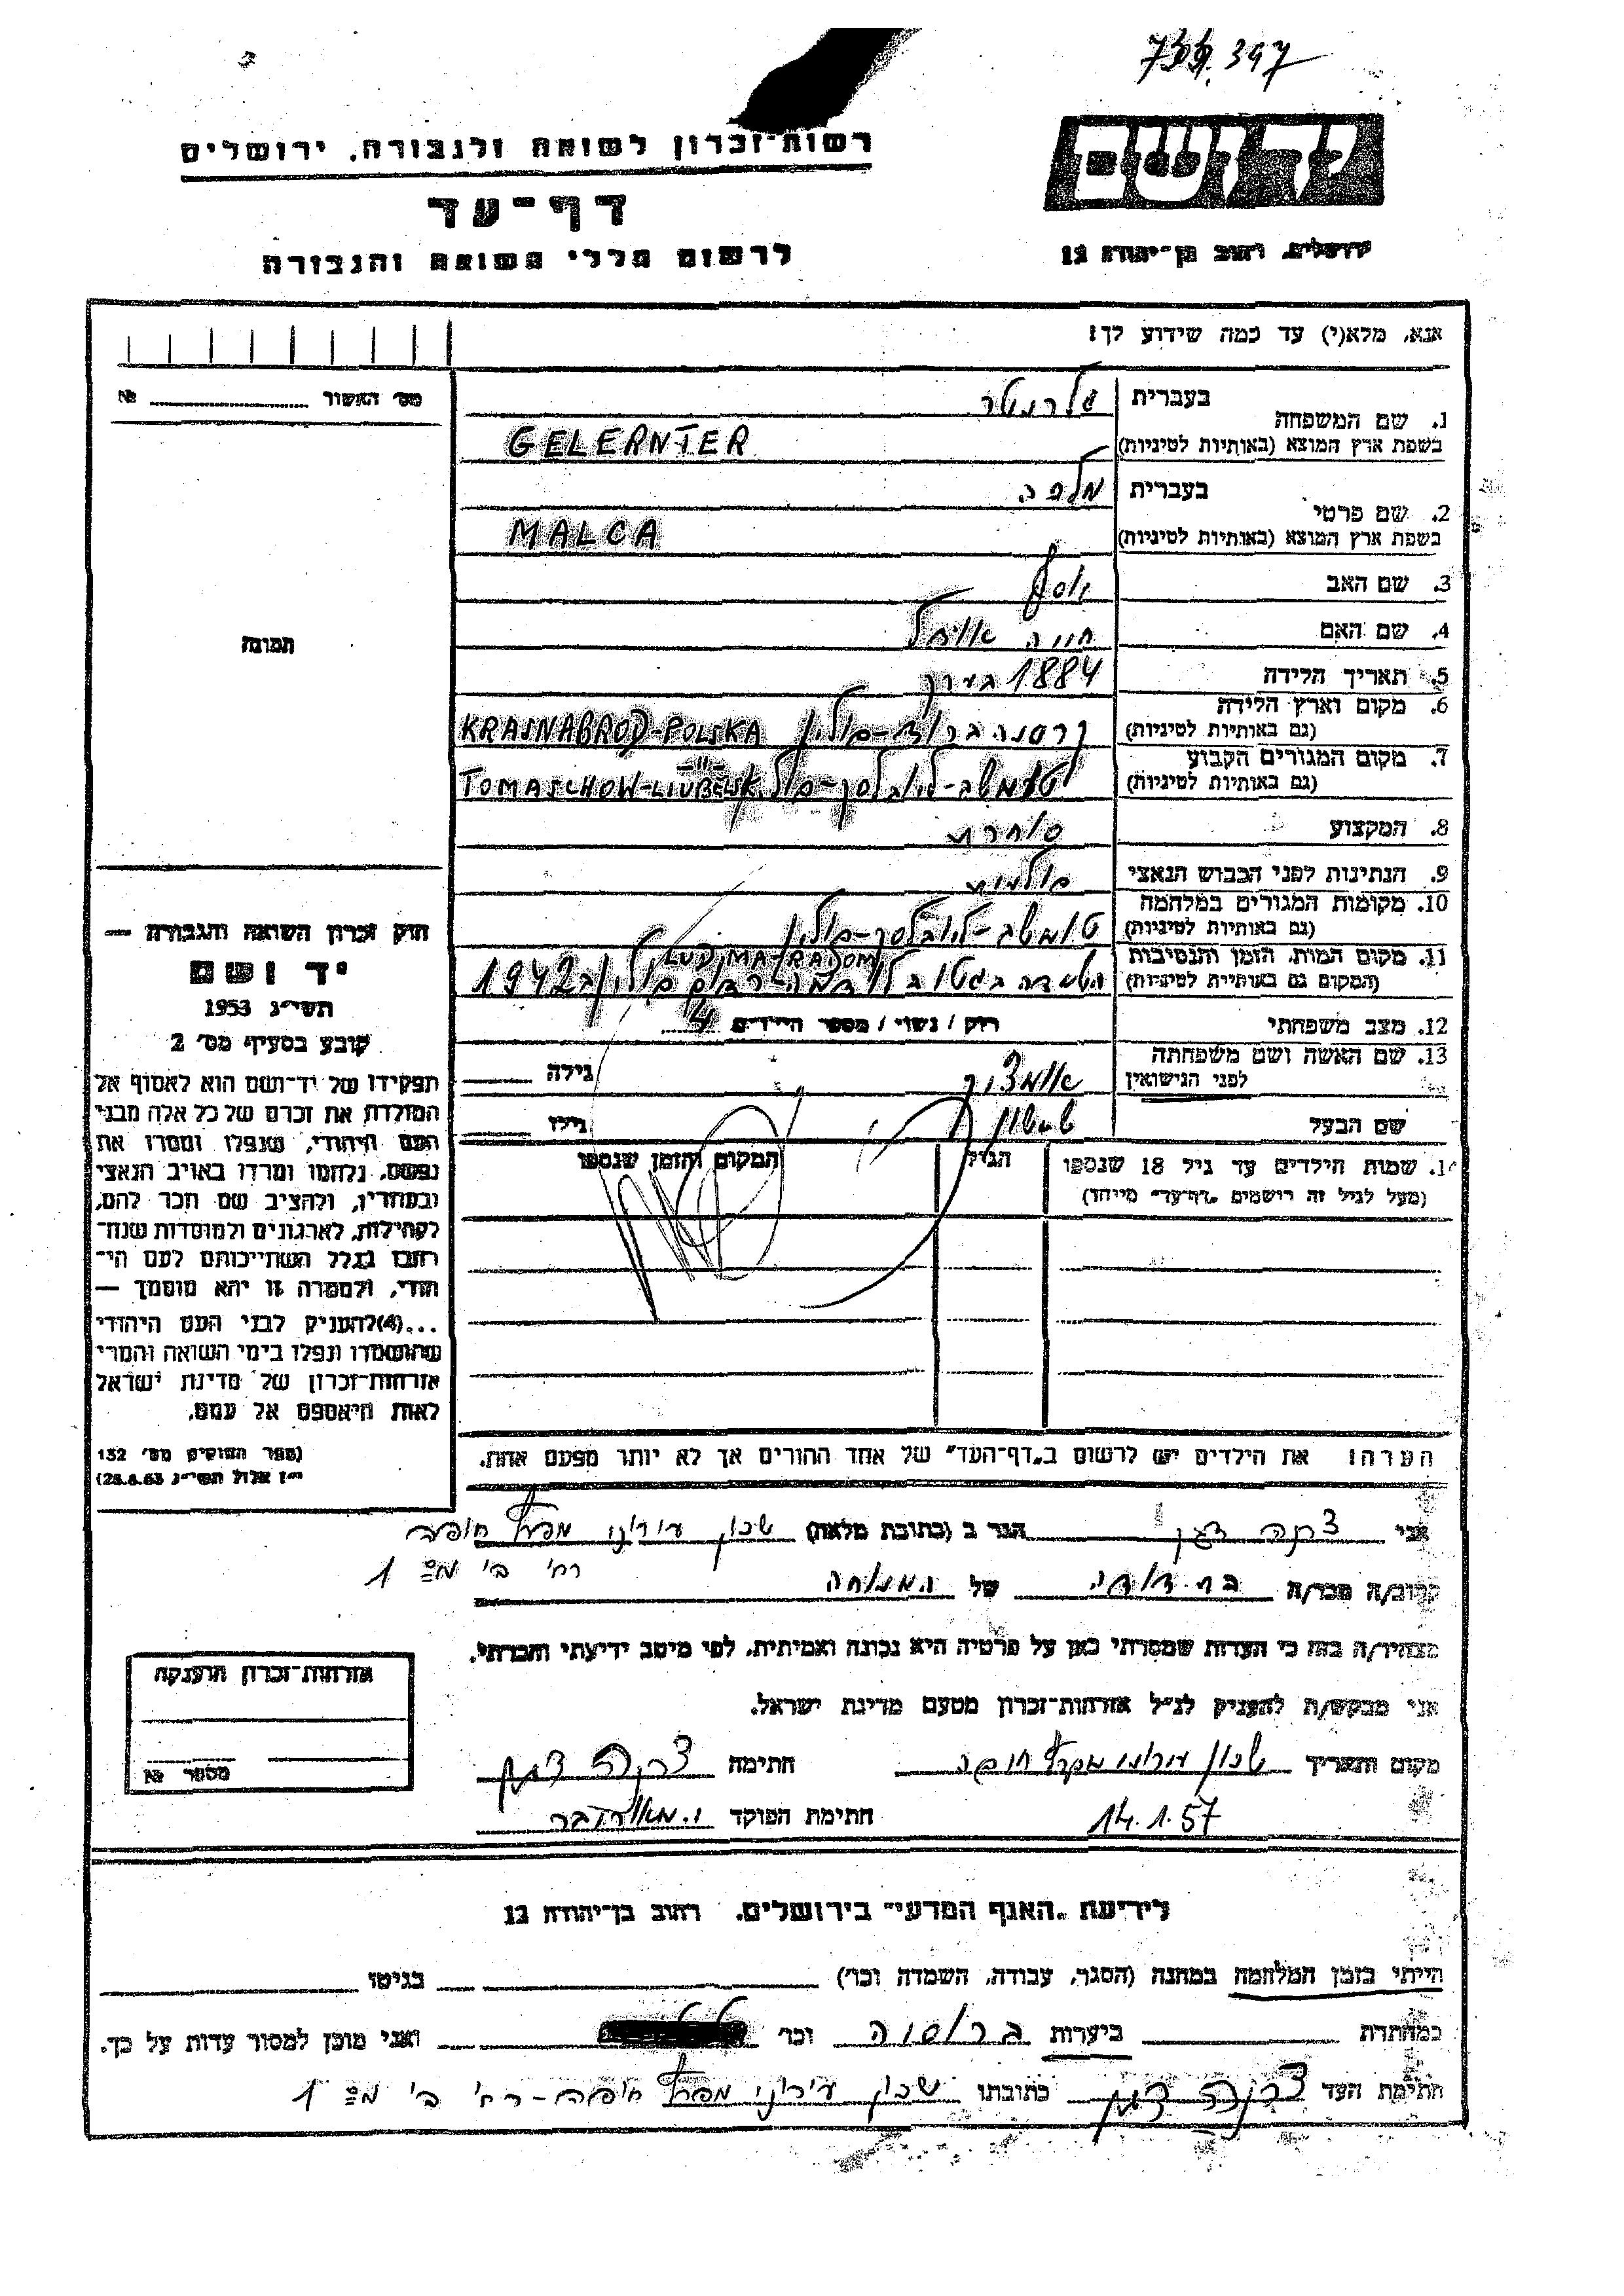 739.397
רשות-זכרון לשואה ולגבורה, ירושלים
יד ושם
דף-עד
לרשום חללי השואה והגבורה
ירושלים, רחוב בן-יהודה 12
אנא, מלא(י) עד כמה שידוע לך!
מס' האשור № 
1. שם המשפחה
בעברית גלרנטר
בשפת ארץ המוצא (באותיות לטיניות) GELERNTER
2. שם פרטי
בעברית מלכה
בשפת ארץ המוצא (באותיות לטיניות) MALCA
3. שם האב יוסף
4. שם האם חוה
5. תאריך הלידה 1884 בערך
6. מקום וארץ הלידה
(גם באותיות לטיניות) קרסנהברוד-פולין KRASNABROD-POLSKA
7. מקום המגורים הקבוע
(גם באותיות לטיניות) טומשב-לובלסקי-פולין TOMASCHOW-LIUBELSK -"-
8. המקצוע סוחרת
9. הנתינות לפני הכבוש הנאצי פולנית
10. מקומות המגורים במלחמה
(גם באותיות לטיניות) טומשב-לובלסקי-פולין
11. מקום המות, הזמן והנסיבות
(המקום גם באותיות לטיניות) LUDJMA-RADOM
הושמדה בגטו בלודמה-רדום פולין ב 1942
12. מצב משפחתי רוק / נשוי / מספר הילדים 4
13. שם האשה ושם משפחתה
לפני הנישואין גילה
שם הבעל שמשון גילו
14. שמות הילדים עד גיל 18 שנספו
(מעל לגיל זה רושמים "דף-עד" מיוחד)
הגיל
המקום והזמן שנספו
הערה: את הילדים יש לרשום ב"דף-העד" של אחד ההורים אך לא יותר מפעם אחת.
תמונה
חוק זכרון השואה והגבורה —
יד ושם
תשי"ג 1953
קובע בסעיף מס' 2
תפקידו של יד-ושם הוא לאסוף אל
המולדת את זכרם של כל אלה מבני
העם היהודי, שנפלו ומסרו את
נפשם, נלחמו ומרדו באויב הנאצי
ובעוזריו, ולהציב שם וזכר להם,
לקהילות, לארגונים ולמוסדות שנח-
רבו בגלל השתייכותם לעם הי-
הודי, ולמטרה זו יהא מוסמך —
...(4)להעניק לבני העם היהודי
שהושמדו ונפלו בימי השואה והמרי
אזרחות-זכרון של מדינת ישראל
לאות היאספם אל עמם.
(ספר החוקים מס' 132
י"ז אלול תשי"ג 28.8.53)
אני דגן הגר ב (כתובת מלאה) שכון עירוני מפרץ חיפה
רח' ב' מס 1
קרוב/ה מכר/ה בת דודה של המנוחה
מצהיר/ה בזה כי העדות שמסרתי כאן על פרטיה היא נכונה ואמיתית, לפי מיטב ידיעתי והכרתי.
אני מבקש/ת להעניק לנ"ל אזרחות-זכרון מטעם מדינת ישראל.
מקום ותאריך שכון עירוני מפרץ חיפה חתימה דגן
14.1.57 חתימת הפוקד
אזרחות-זכרון הוענקה
מספר №
לידיעת "האגף המדעי" בירושלים, רחוב בן-יהודה 12
הייתי בזמן המלחמה במחנה (הסגר, עבודה, השמדה וכו') בגיטו
במחתרת ביערות ברוסיה וכו' ואני מוכן למסור עדות על כך.
חתימת העד דגן כתובתו שכון עירוני מפרץ חיפה - רח' ב' מס 1